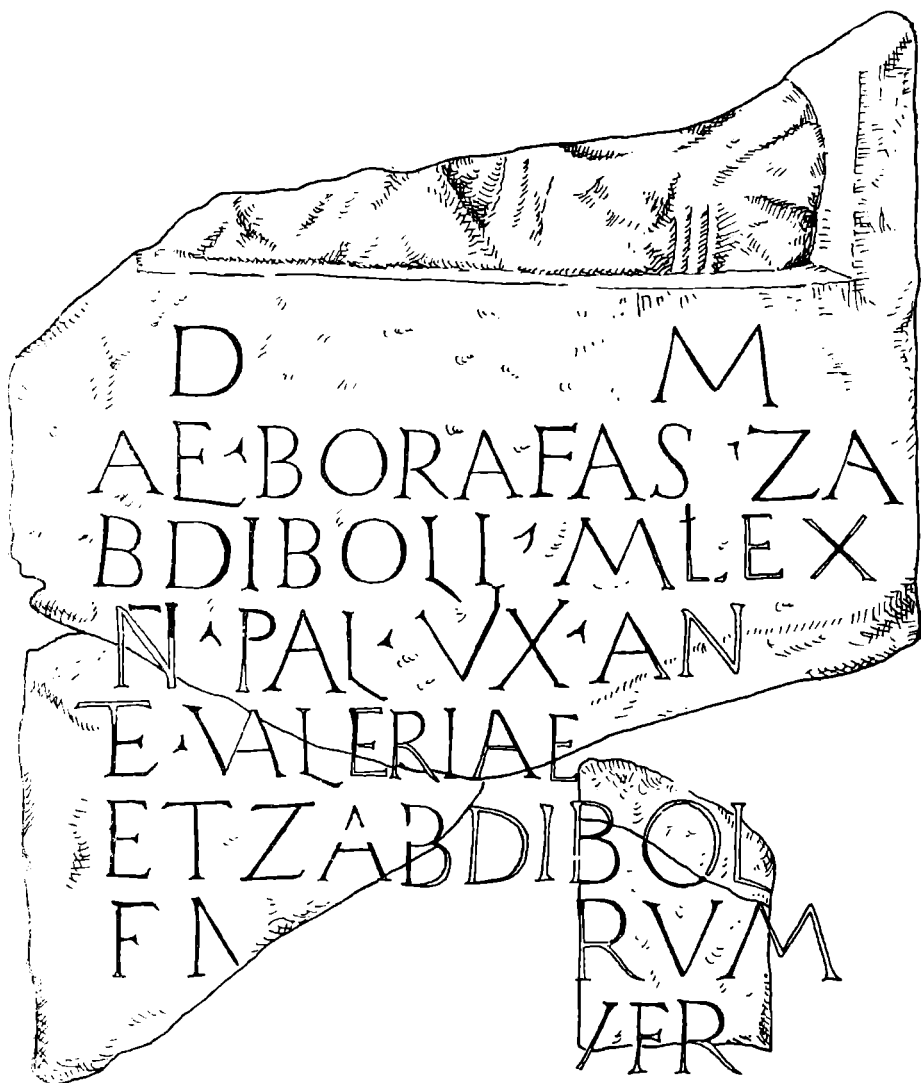 D M
AE·BORAFAS·ZA
BDIBOLI·MLEX
N·PAL·VX·AN
TE·VALERIAE
ETZABDIBOL
F RVM
FR